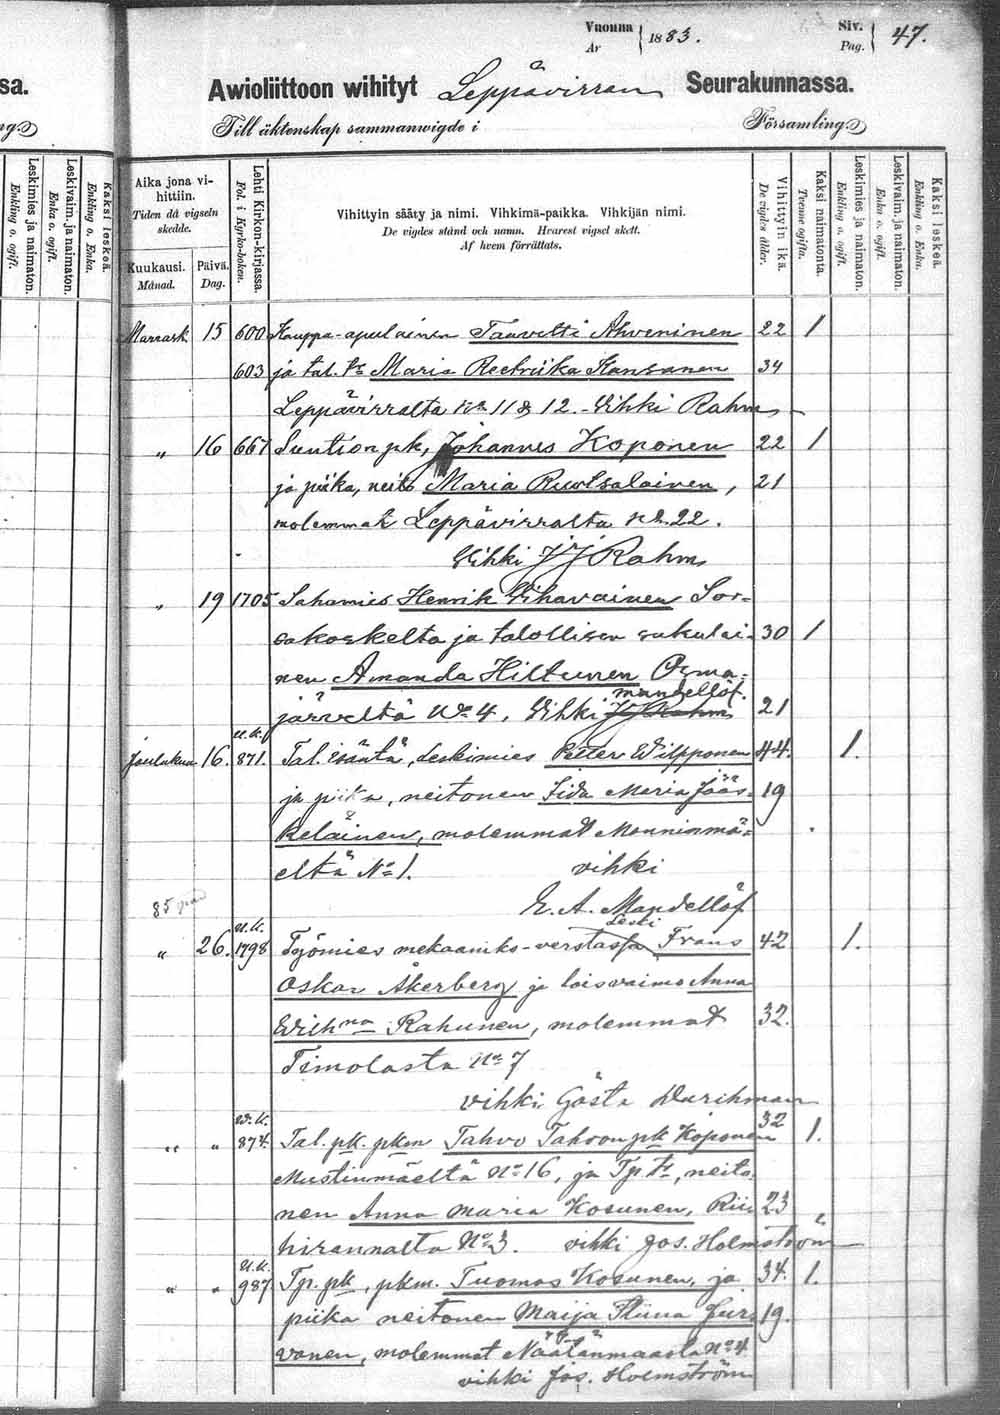 sa.
ng.
Leskimies ja naimaton.
Enkling o. ogift.
Leskivaim. ja naimaton.
Enka o. ogift.
Kaksi leskeä.
Enkling o. Enka.
Vuonna 1883. Siv. 47.
År Pag.
Awioliittoon wihityt Leppävirran Seurakunnassa.
Till äktenskap sammanwigde i Församling
Aika jona vihittiin.
Tiden då vigseln skedde.
Kuukausi.
Månad.
Päivä.
Dag.
Lehti Kirkon-kirjassa.
Fol. i Kyrko-boken.
Vihittyin sääty ja nimi. Vihkimä-paikka. Vihkijän nimi.
De vigdes stånd och namn. Hvarest vigsel skett.
Af hvem förrättats.
Vihittyin ikä.
De vigdes ålder.
Kaksi naimatonta.
Trenne ogifta.
Leskimies ja naimaton.
Enkling o. ogift.
Leskivaim. ja naimaton.
Enka o. ogift.
Kaksi leskeä.
Enkling o. Enka.
Marrask. 15 600 Kauppa-apulainen Taavetti Ahveninen 22 1
603 ja tal. tr Maria Reetriika Kansanen 34
Leppävirralta No 11 & 12. Vihki Rahm
" 16 667 Suntion pk, Johannes Koponen 22 1
ja piika, neito Maria Ruotsalainen, 21
molemmat Leppävirralta No 22.
Vihki J J Rahm
" 19 1705 Sahamies Henrik Vihavainen Sor-
sakoskelta ja talollisen sukulai- 30 1
nen Amanda Hiltunen Osma-
Mandellöf.
järveltä No 4. Vihki JJ Rahm 21
u.k.
Joulukuu 16. 871. Tal. isäntä, leskimies Petter Wilpponen 44. 1.
ja piika, neitonen Iida Maria Jääs- 19
keläinen, molemmat Monninmä-
eltä No 1. vihki
E. A. Mandellöf
85
u.k. Leski
" 26. 1798 Työmies mekaaniko-verstassa Frans 42 1.
Oskar Åkerberg ja loisvaimo Anna
Wilhna Rahunen, molemmat 32.
Timolasta No 7
vihki Gösta Durchman
u.k. 32
" " 874. Tal. pk. pkm Tahvo Tahvon pk Koponen 1.
Mustinmäeltä No 16, ja Tp. tr, neito-
nen Anna Maria Kosunen, Rii- 23 "
hirannalta No 3. vihki Jos. Holmström
u.k.
" " 987. Tp. pk, pkm. Tuomas Kosunen, ja 34. 1.
piika neitonen Maija Stiina Jur- 19.
vanen, molemmat Näätänmaasta No 4
vihki Jos. Holmström